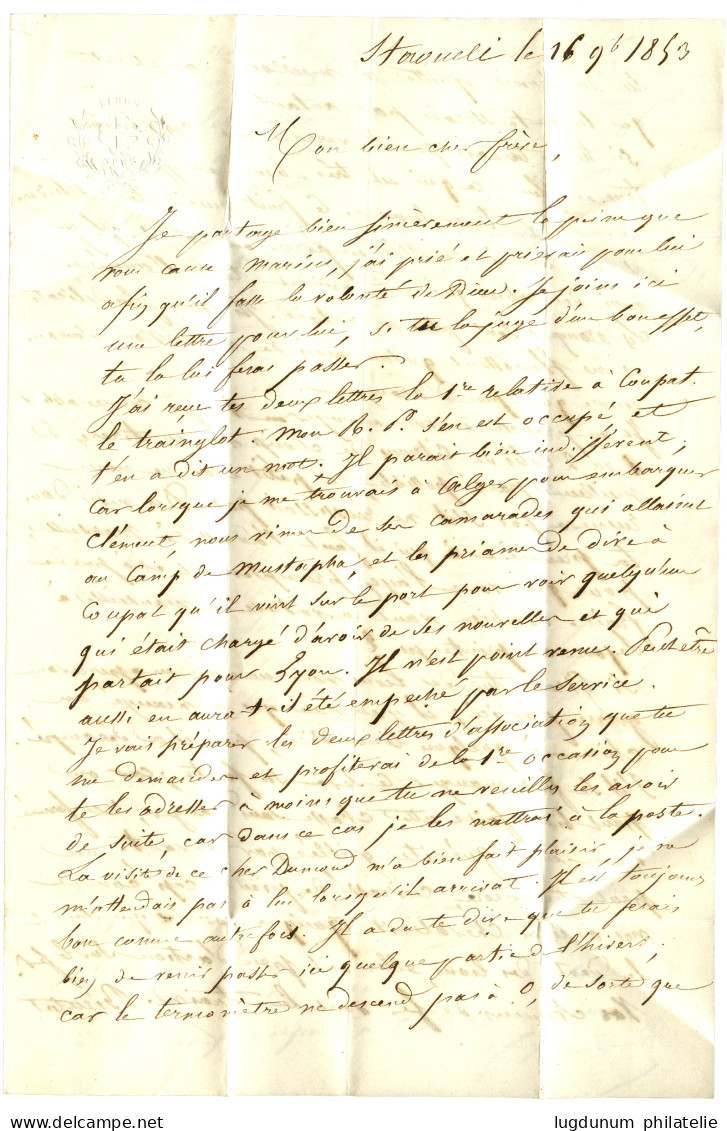 Staoueli le 16 9b 1853
Mon bien cher frère,
Je partage bien sincèrement la peine que
vous cause Marius, j'ai prié et prierai pour lui
afin qu'il fasse la volonté de Dieu. Je joins ici
une lettre pour lui, si tu la juge d'un bon effet,
tu la lui feras passer.
J'ai reçu tes deux lettres la 1re relative à Coupat.
le trainglot. Mon R. P. s'en est occupé et
t'en a dit un mot. Il parait bien indifférent;
car lorsque je me trouvais à Alger pour embarquer
Clément, nous vimes de ses camarades qui allaient
au Camp de Mustapha, et les priames de dire à
Coupat qu'il vint sur le port pour voir quelqu'un
qui était chargé d'avoir de ses nouvelles et qui
partait pour Lyon. Il n'est point venu. Peut être
aussi en aura-t-il été empeché par le service.
Je vais préparer les deux lettres d'association que tu
me demandes et profiterai de la 1re occasion pour
te les adresser à moins que tu ne veuilles les avoir
de suite, car dans ce cas je les mettrai à la poste.
La visite de ce cher Dumond m'a bien fait plaisir, je ne
m'attendais pas à lui lorsqu'il arrivat. Il est toujours
bon comme autrefois. Il a du te dire que tu ferais
bien de venir passer ici quelque partie de l'hiver;
car le termomètre ne descend pas à 0, de sorte que
lugdunum philatelie